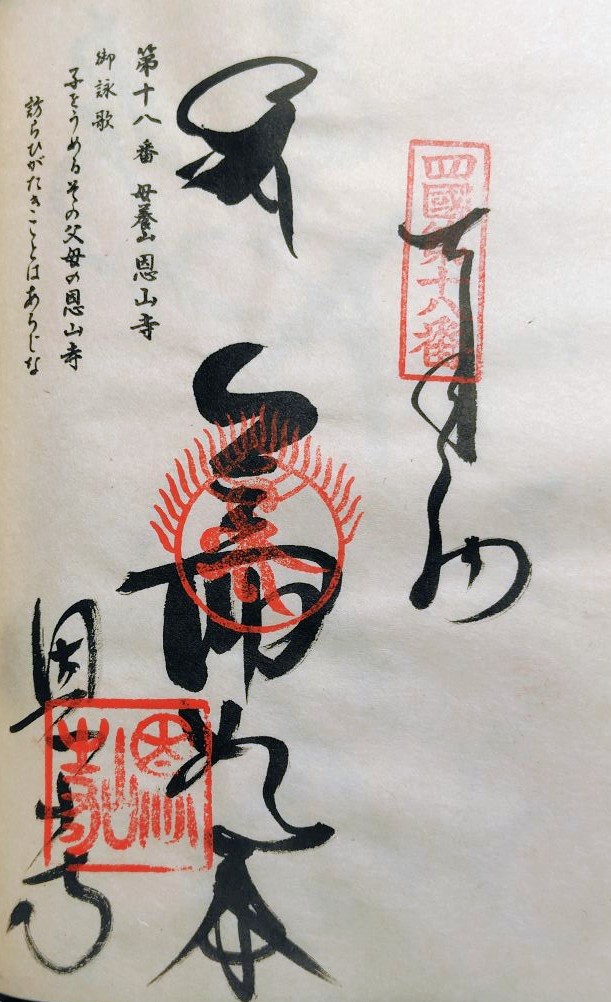 四國第十八番
奉納
薬師如来
恩山寺
第十八番 母養山 恩山寺
御詠歌
子をうめるその父母の恩山寺
訪らひがたきことはあらじな